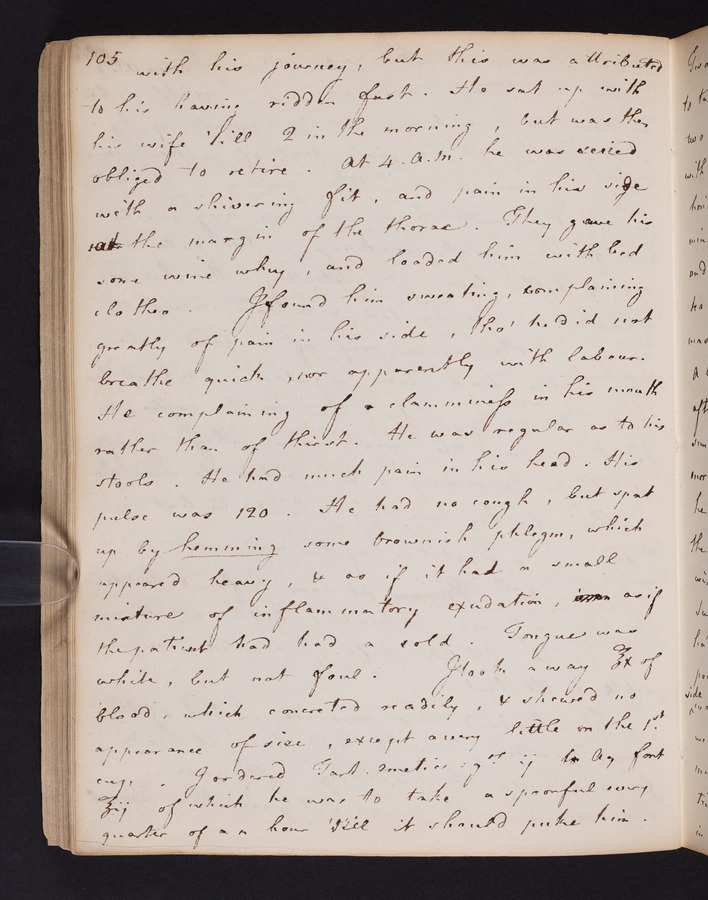 105
with his journey, but this was attributed
to his having ridden fast. He sat up with
his wife 'till 2 in the morning, but was then
obliged to retire. At 4. A.M. he was seized
with a shivering fit, and pain in his side
at the margin of the thorax. They gave his
some wine whey, and loaded him with bed
clothes. I found him sweating, complaining
greatly of pain in his side, tho' he did not
breathe quick, nor apparently with labour.
He complaining of a clamminess in his mouth
rather than of thirst. He was regular as to his
stools. He had much pain in his head. His
pulse was 120. He had no cough, but spat
up by hemming some brownish phlegm, which
appeared heavy, & as if it had a small
mixture of inflammatory exudation, as if
the patient had had a cold. Tongue was
white, but not foul. I took away ℥x of
blood, which concreted readily, & shewed no
appearance of size, except a very little on the 1st.
cup. I ordered Tart. emetic: grs ij in Aq font
℥ij of which he was to take a spoonful every
quarter of an hour 'till it should puke him.